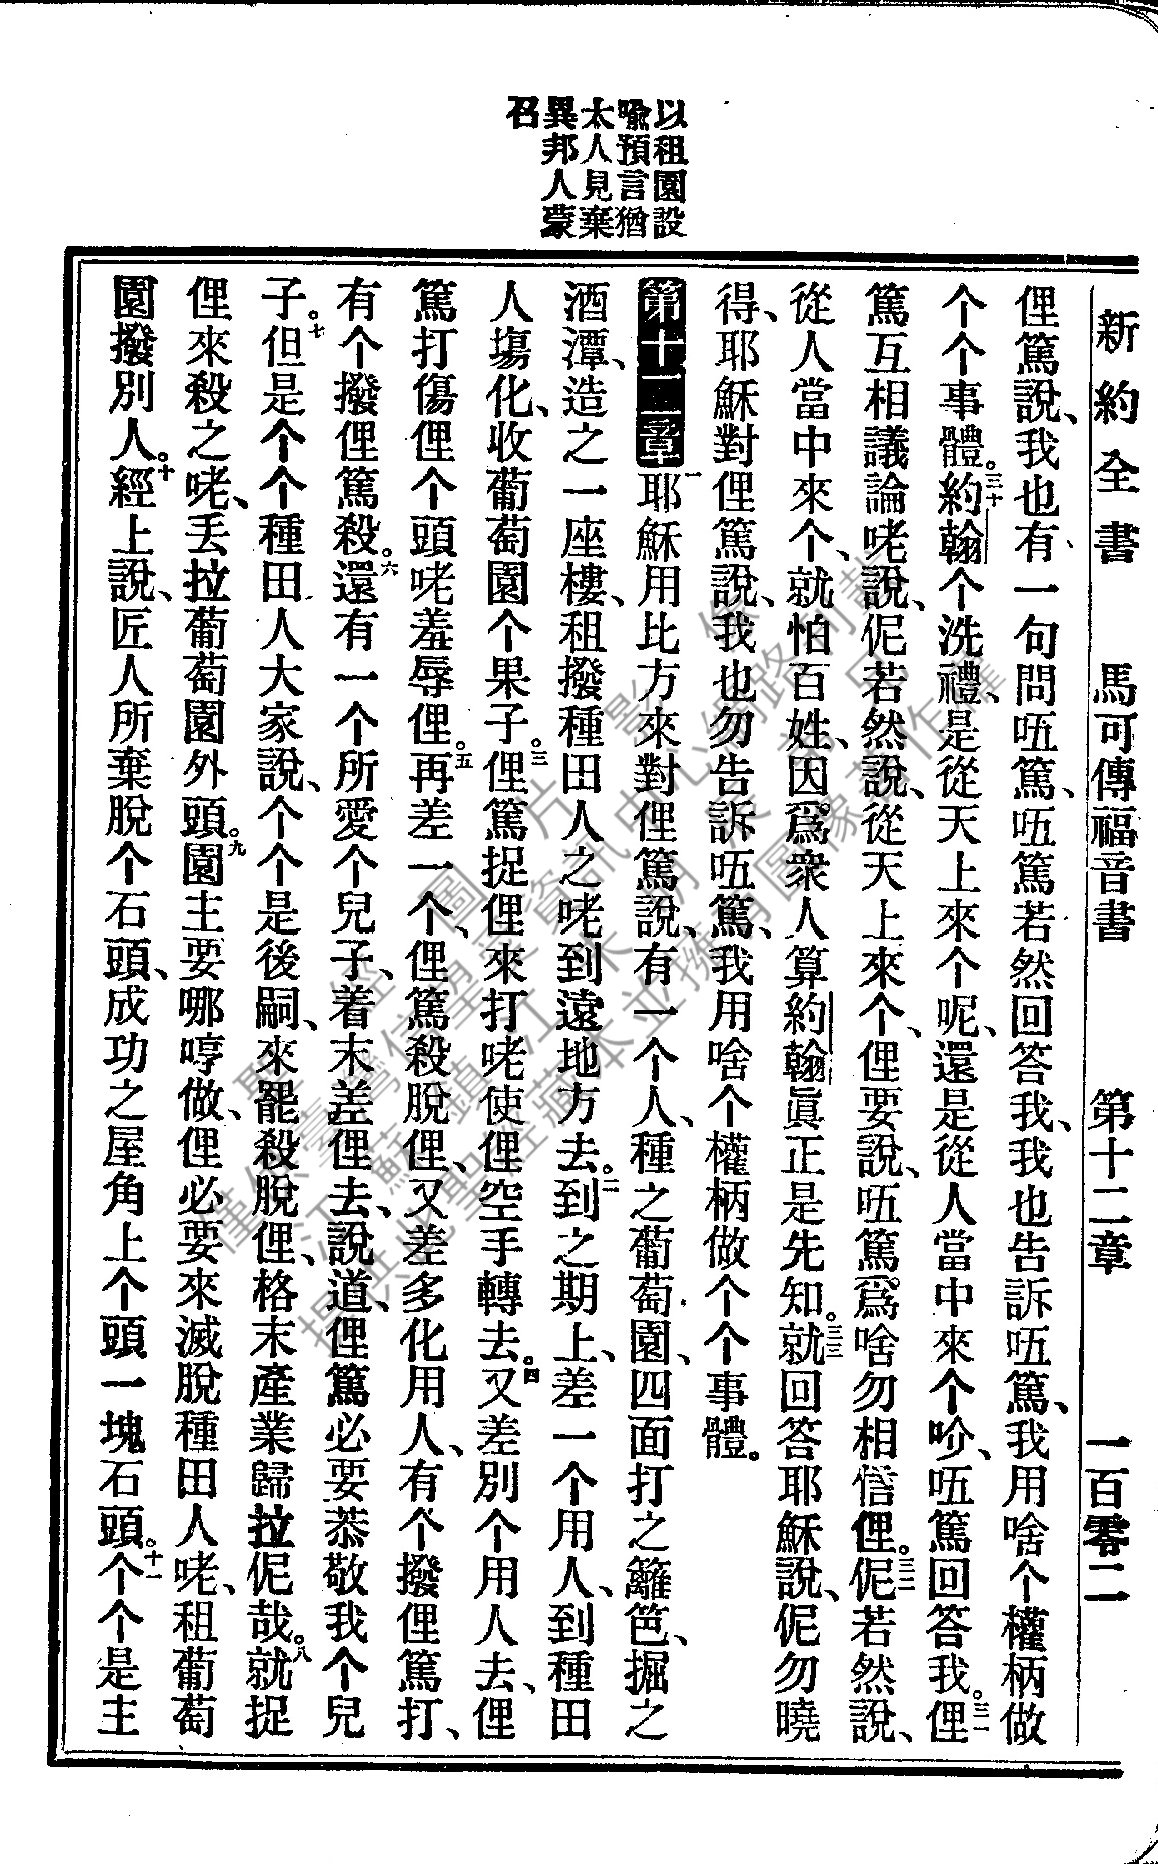 新約全書 馬可傳福音書 第十二章 一百零二
以租園設
喩預言猶
太人見棄
異邦人蒙
召
俚篤說、我也有一句問㕶篤、㕶篤若然回答我、我也告訴㕶篤、我用啥个權柄做
个个事體。三十約翰个洗禮、是從天上來个呢、還是從人當中來个吤、㕶篤回答我。三一俚
篤互相議論咾說、伲若然說、從天上來个、俚要說、㕶篤爲啥勿相信俚。三二伲若然說、
從人當中來个、就怕百姓、因爲衆人算約翰眞正是先知。三三就回答耶穌說、伲勿曉
得、耶穌對俚篤說、我也勿告訴㕶篤、我用啥个權柄做个个事體。
第十二章 一耶穌用比方來對俚篤說、有一个人、種之葡萄園、四面打之籬笆、掘之
酒潭、造之一座樓、租撥種田人之咾到遠地方去。二到之期上、差一个用人、到種田
人塲化、收葡萄園个果子。三俚篤捉俚來打咾使俚空手轉去。四又差別个用人去、俚
篤打傷俚个頭咾羞辱俚。五再差一个、俚篤殺脫俚、又差多化用人、有个撥俚篤打、
有个撥俚篤殺。六還有一个所愛个兒子、着末差俚去、說道、俚篤必要恭敬我个兒
子。七但是个个種田人大家說、个个是後嗣、來罷殺脫俚、格末產業歸拉伲哉。八就捉
俚來殺之咾、丢拉葡萄園外頭。九園主要哪哼做、俚必要來滅脫種田人咾、租葡萄
園撥別人。十經上說、匠人所棄脫个石頭、成功之屋角上个頭一塊石頭。十一个个是主